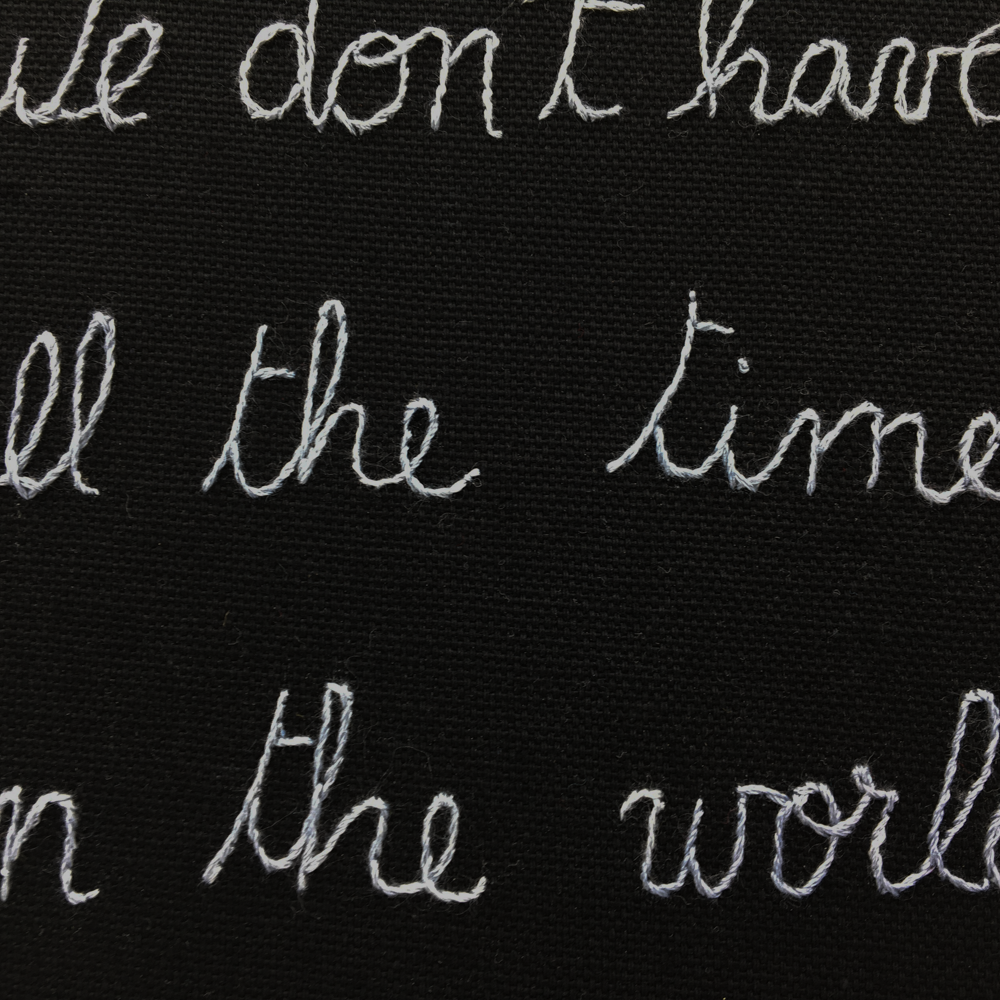 we don't have
all the time
in the world